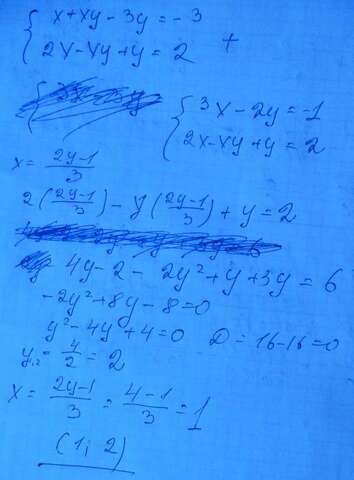 { x + xy - 3y = -3
{ 2x - xy + y = 2 +
{ 3x - 2y = -1
{ 2x - xy + y = 2
x = \frac{2y-1}{3}
2(\frac{2y-1}{3}) - y(\frac{2y-1}{3}) + y = 2
4y - 2 - 2y² + y + 3y = 6
-2y² + 8y - 8 = 0
y² - 4y + 4 = 0 D = 16 - 16 = 0
y₁,₂ = \frac{4}{2} = 2
x = \frac{2y-1}{3} = \frac{4-1}{3} = 1
(1; 2)